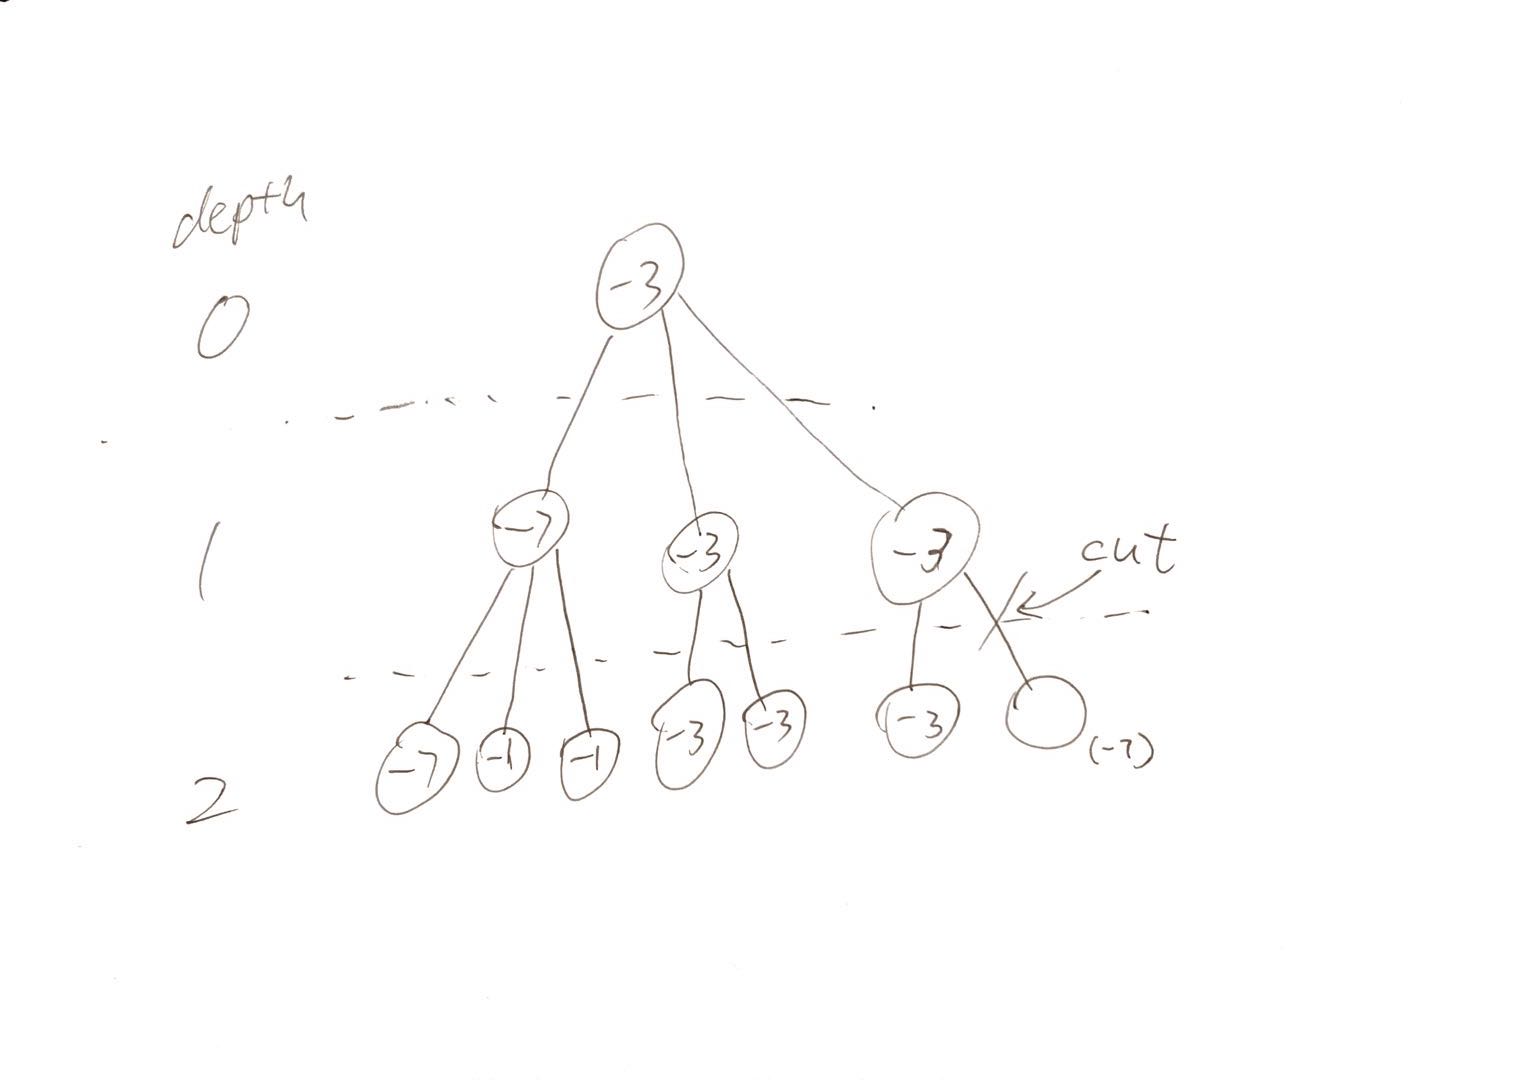 depth
0
-3
1
-7
-3
-3
cut
2
-7
-1
-1
-3
-3
-3
(-7)